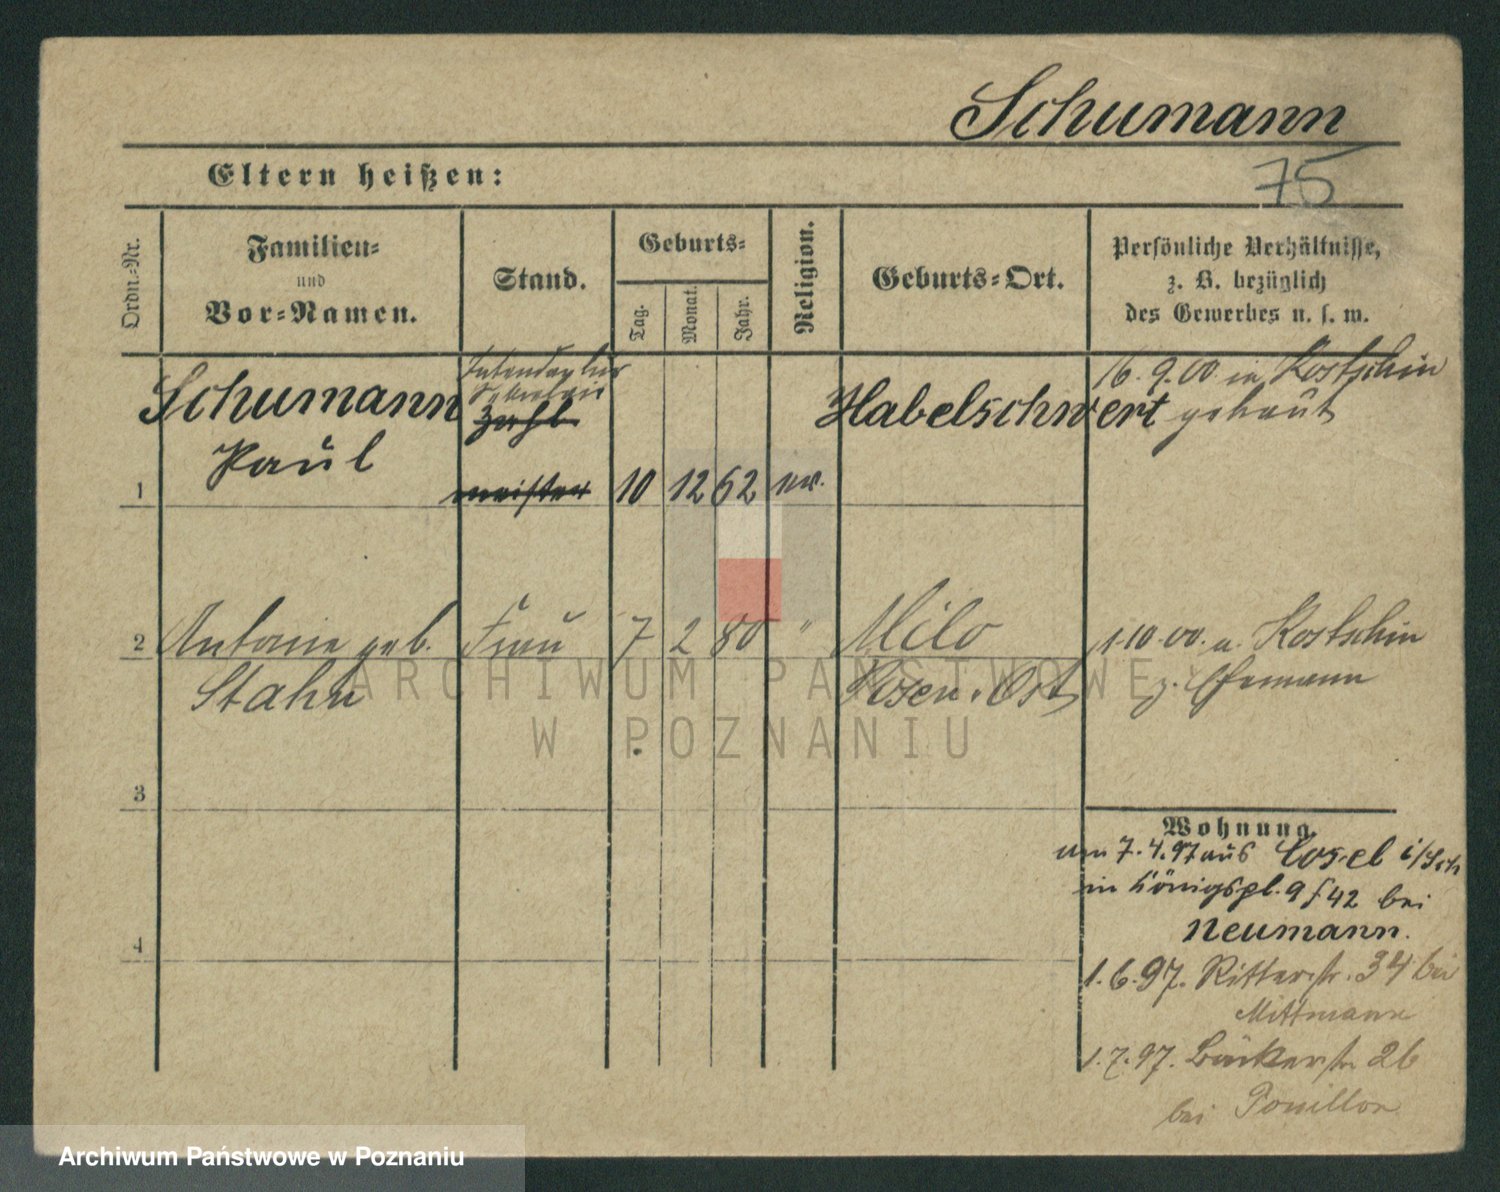 Schumann
75
Eltern heißen:
Ordn.-Nr.
Familien-
und
Vor-Namen.
Stand.
Geburts-
Tag.
Monat.
Jahr.
Religion.
Geburts-Ort.
Persönliche Verhältnisse,
z. B. bezüglich
des Gewerbes u. s. w.
1
Schumann
Paul
Zahl
meister
10 12 62
Habelschwert
16.9.00 in Kostschin
getraut
2
Antonie geb.
Stahn
Frau
7 2 80 "
Milo
Posen. Ost
1.10.00. a. Kostschin
z. Ehemann
3
4
Wohnung.
am 7.4.97 aus Cosel i/Sch
in Königspl. 9 42 bei
Neumann.
1.6.97. Ritterstr. 34 bei
Mittmann
1.7.97. Bäckerstr. 26
bei
ARCHIWUM PAŃSTWOWE
W POZNANIU
Archiwum Państwowe w Poznaniu